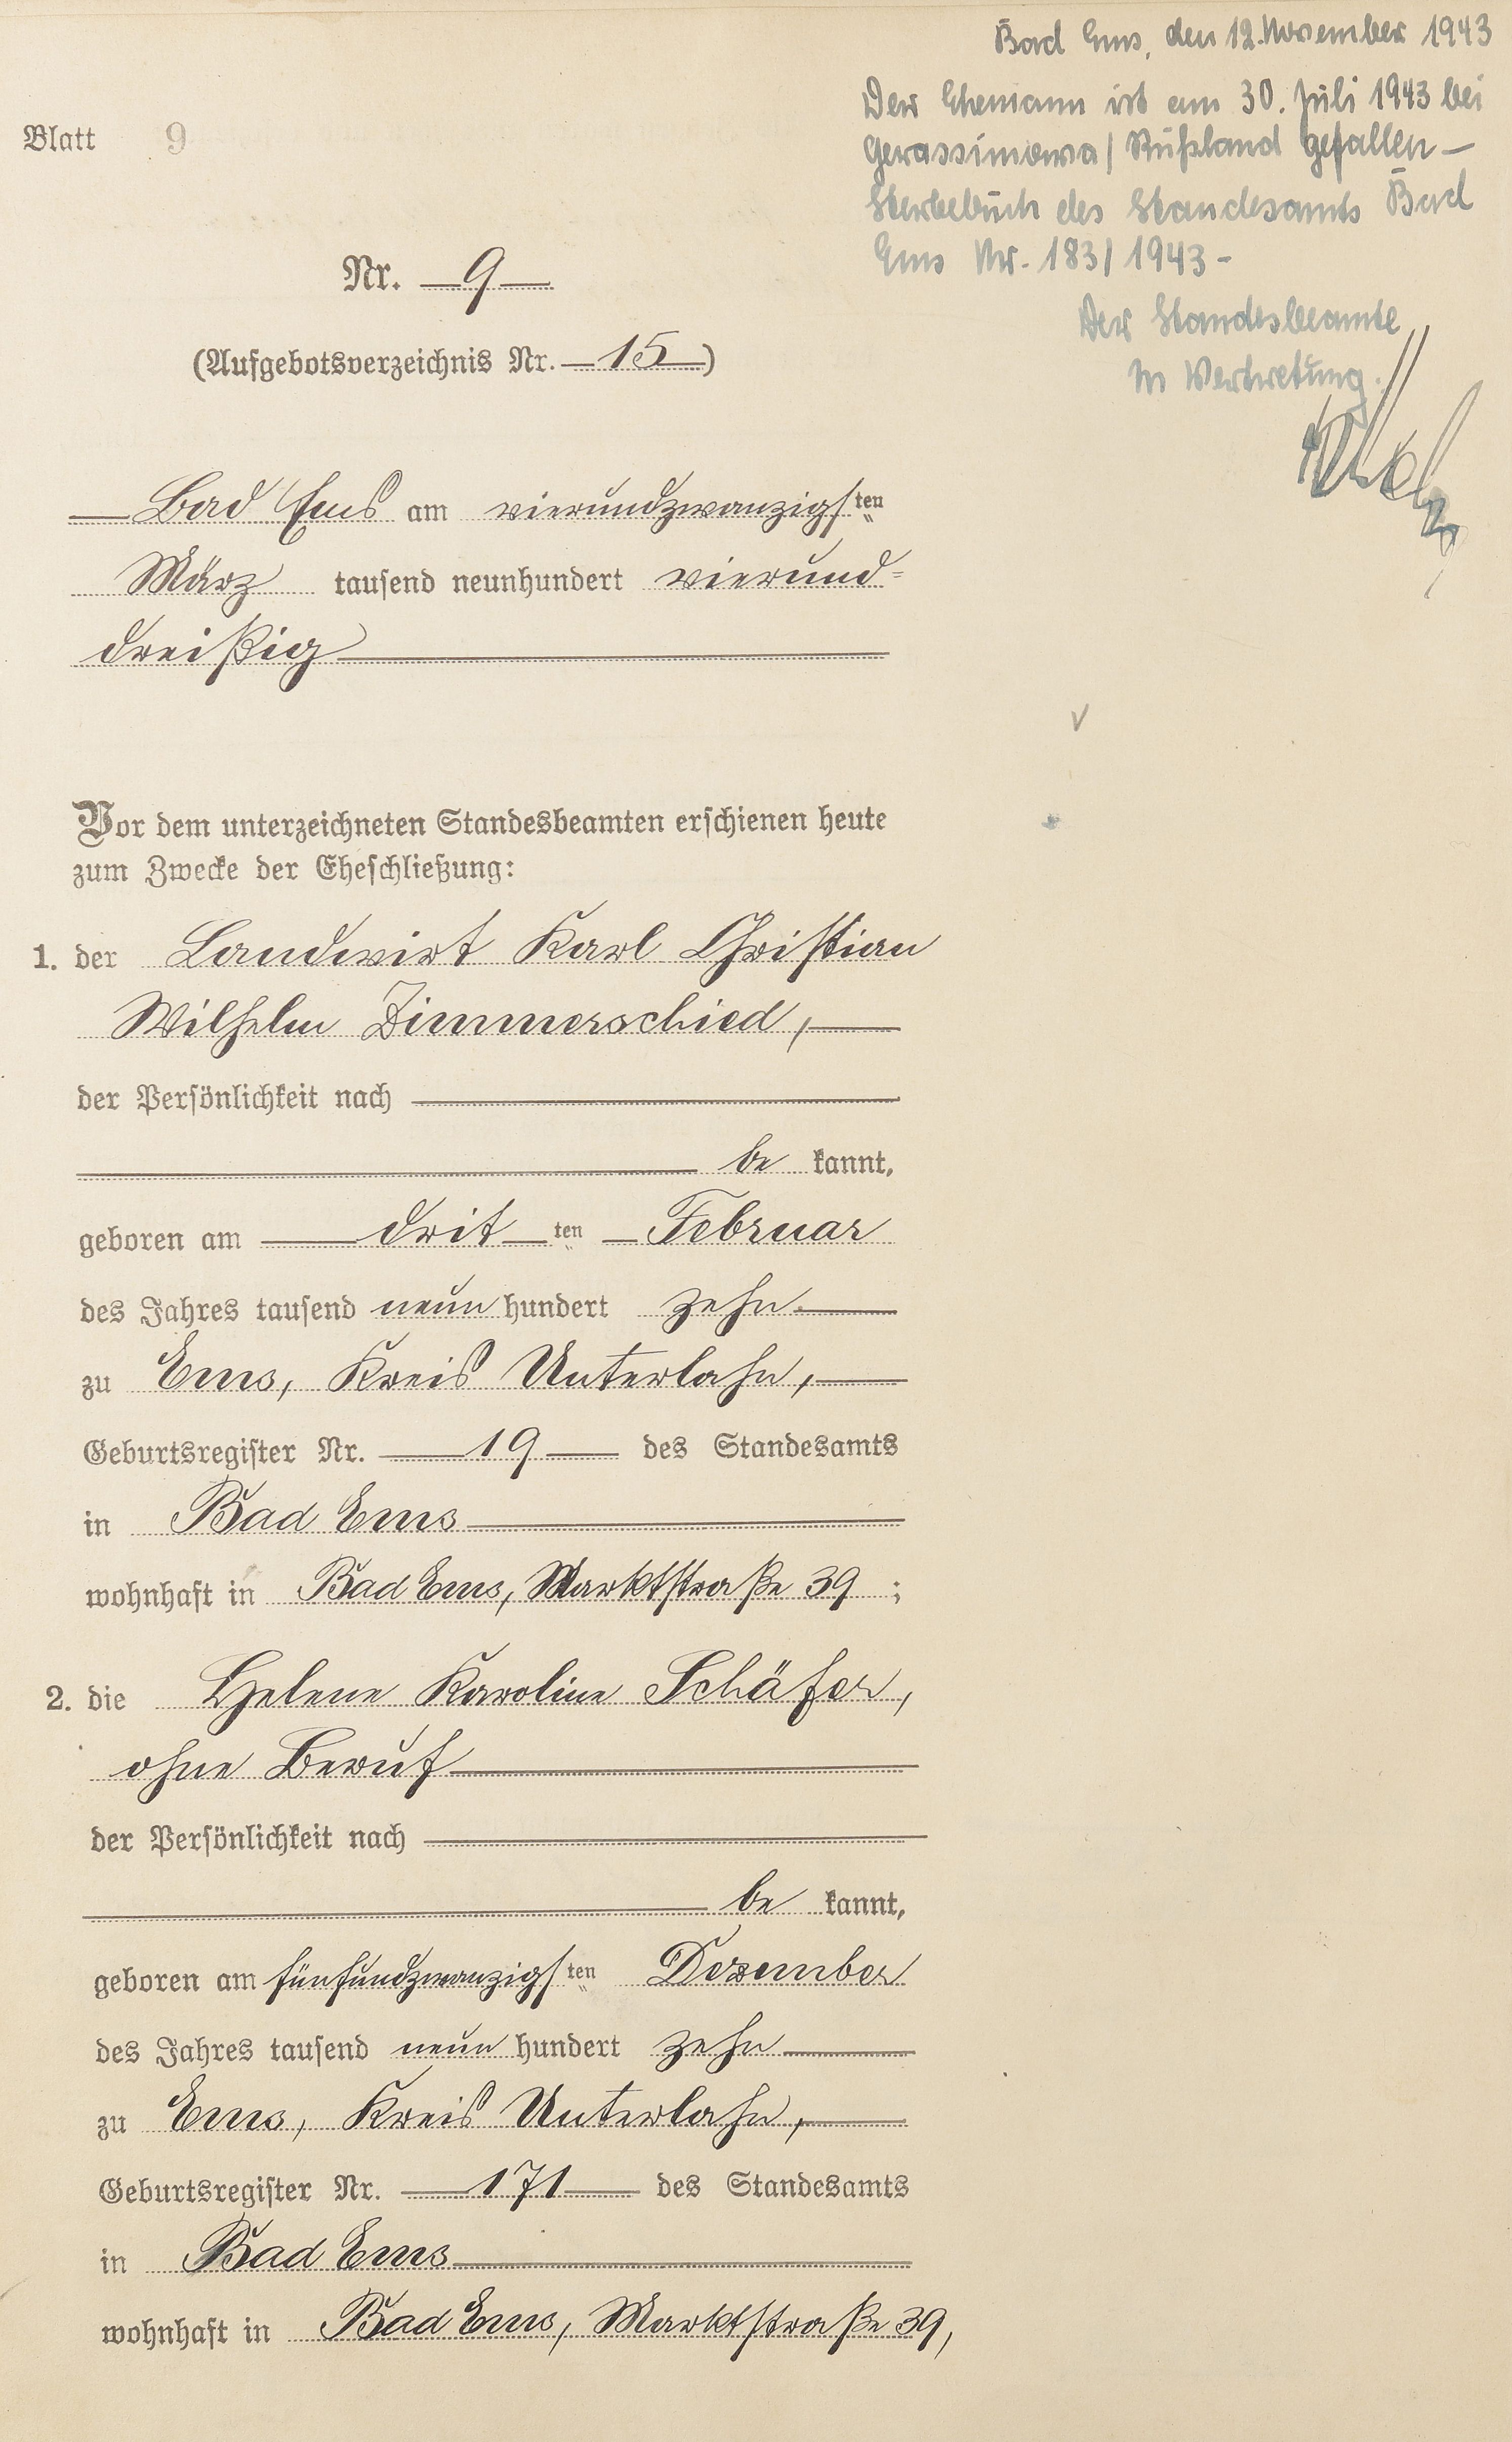 Bad Ems, den 12. November 1943
Der Ehemann ist am 30. Juli 1943 bei
Gerassimowa / Rußland gefallen —
Sterbebuch des Standesamts Bad
Ems Nr. 183/1943 -
Der Standesbeamte
In Vertretung.
Blatt 9
Nr. 9
(Aufgebotsverzeichnis Nr. 15)
Bad Ems am vierundzwanzigsten
März tausend neunhundert vierund=
dreißig
Vor dem unterzeichneten Standesbeamten erschienen heute
zum Zwecke der Eheschließung:
1. der Landwirt Karl Christian
Wilhelm Zimmerschied,
der Persönlichkeit nach
be kannt,
geboren am dritten Februar
des Jahres tausend neun hundert zehn
zu Ems, Kreis Unterlahn,
Geburtsregister Nr. 19 des Standesamts
in Bad Ems
wohnhaft in Bad Ems, Marktstraße 39 ;
2. die Helene Karoline Schäfer,
ohne Beruf
der Persönlichkeit nach
be kannt,
geboren am fünfundzwanzigsten Dezember
des Jahres tausend neun hundert zehn
zu Ems, Kreis Unterlahn,
Geburtsregister Nr. 171 des Standesamts
in Bad Ems
wohnhaft in Bad Ems, Marktstraße 39,